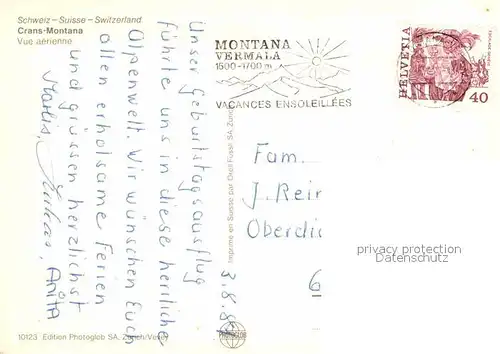 Schweiz – Suisse – Switzerland
Crans-Montana
Vue aérienne
Unser Geburtstagsausflug
führte uns in diese herrliche
Alpenwelt. Wir wünschen Euch
allen erholsame Ferien
und grüssen herzlichst
Anita
3.8.8
MONTANA
VERMALA
1500-1700 m
VACANCES ENSOLEILLÉES
HELVETIA
40
Fam.
J. Reir
Oberdi
6
privacy protection
Datenschutz
Imprimé en Suisse par Orell Füssli SA, Zürich
10123 Edition Photoglob SA, Zürich/Vevey